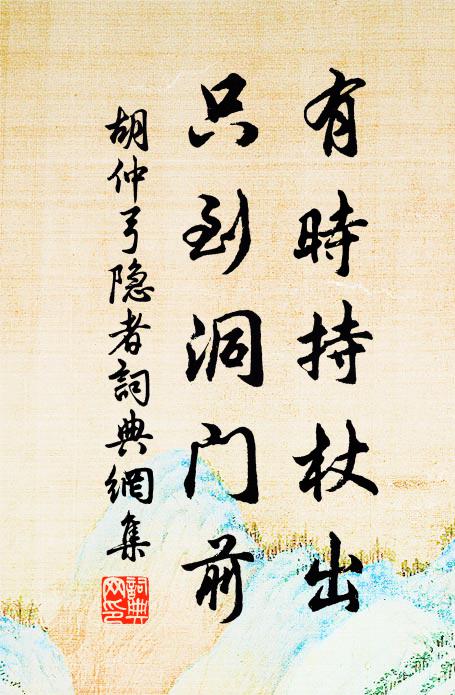 有時持杖出
只到洞门前
胡仲弓隐者詞典網集
詞典网印